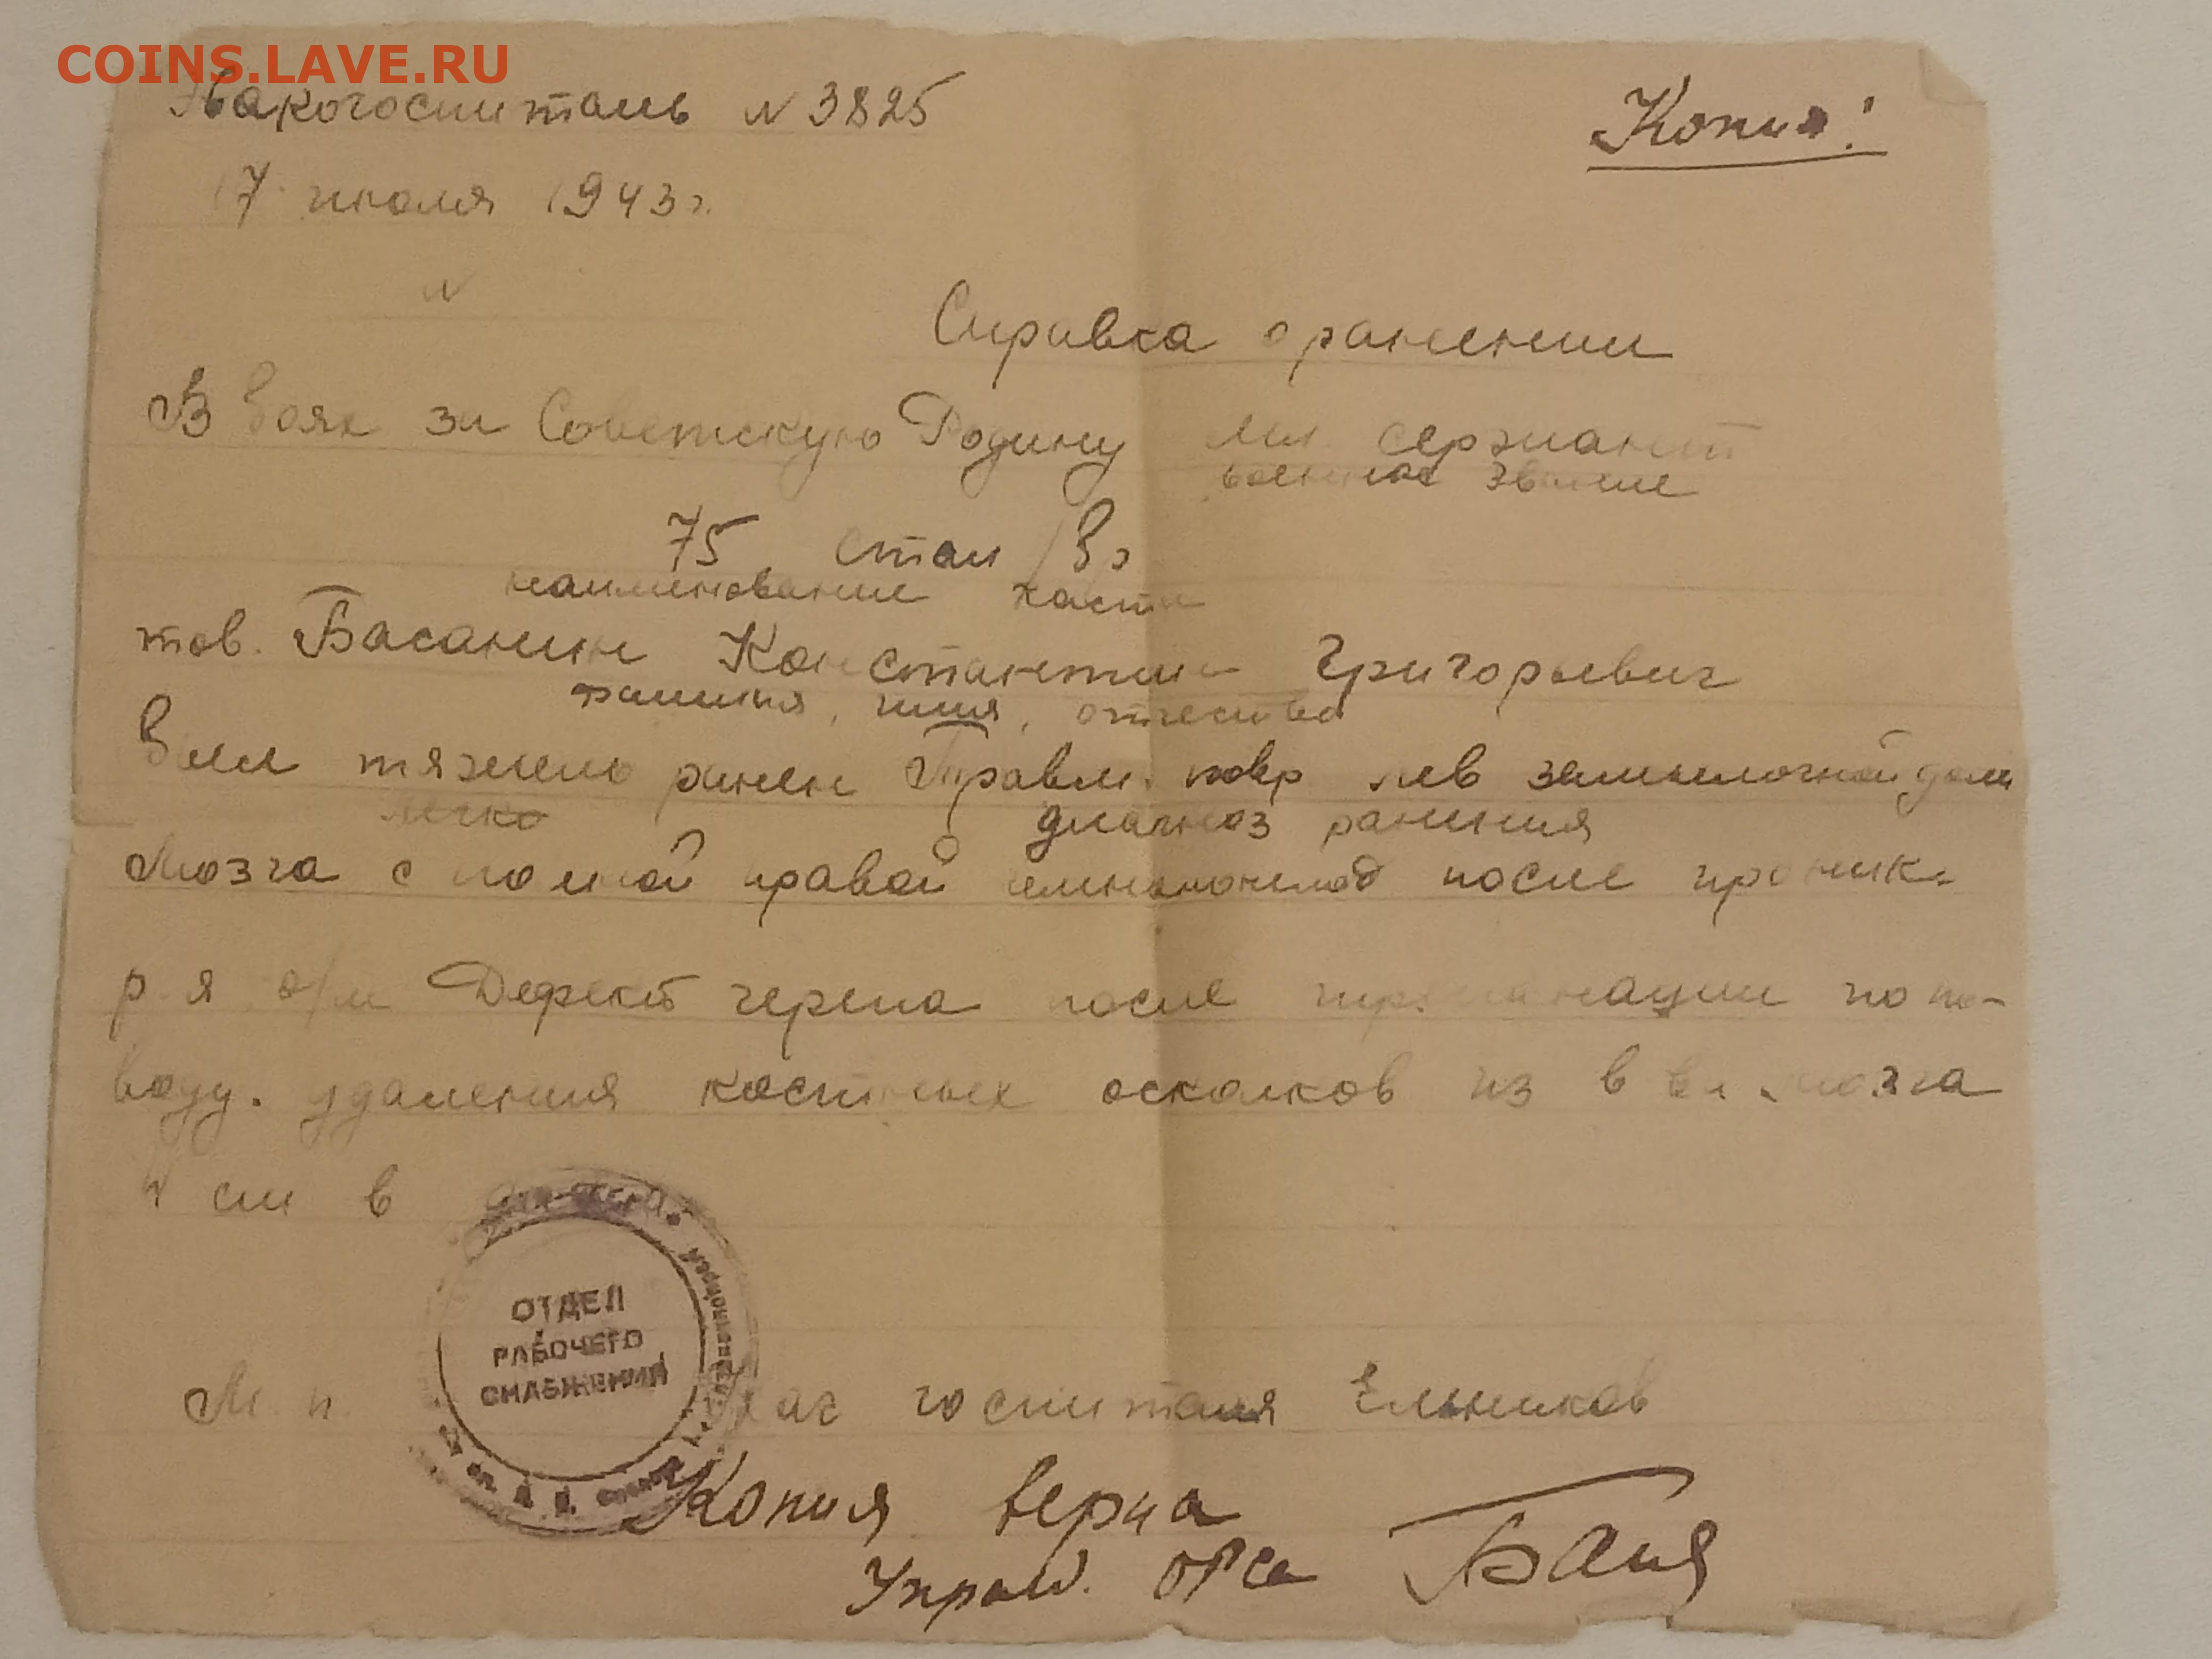 COINS.LAVE.RU
Эвакогоспиталь N 3825
Копия!
17 июля 1943 г.
N
Справка о ранении
В боях за Советскую Родину мл. сержант
военное звание
75 стал
наименование части
тов. Басанин Константин Григорьевич
фамилия, имя, отчество
был тяжело ранен Травм. повр лев затылочной доли
легко
диагноз ранения
мозга с полной правой после проник.
р-я Дефект черепа после трепанации по по-
воду. удаления костных осколков из в мозга
см в
ОТДЕЛ
РАБОЧЕГО
СНАБЖЕНИЯ
М. п. Врач госпиталя Ельников
Копия верна
ОРСа